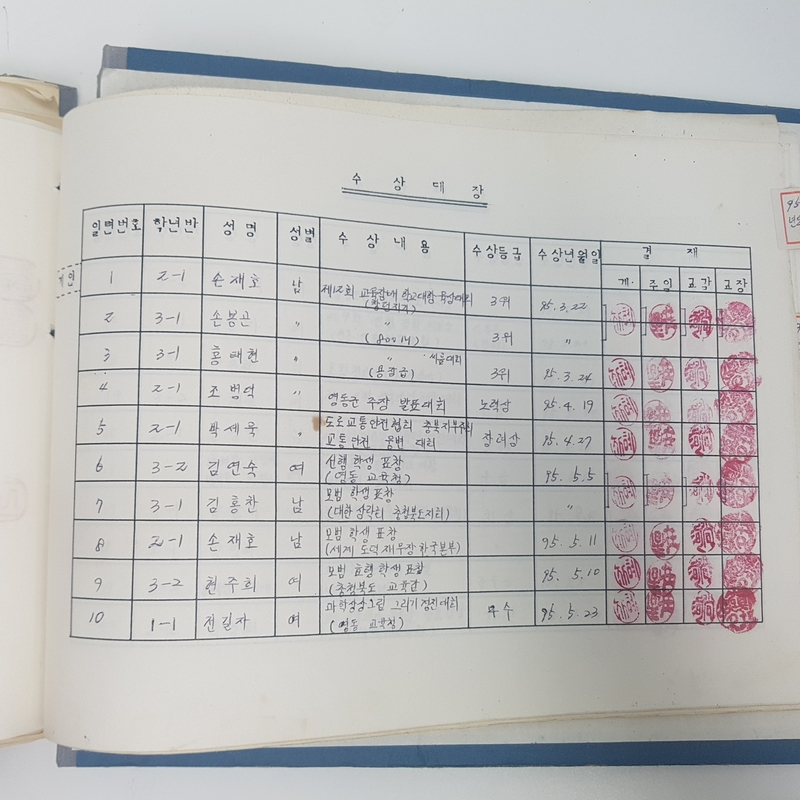 수상대장
일련번호 학년반 성명 성별 수상내용 수상등급 수상년월일 결재
계 주임 교감 교장
1 2-1 손재호 남 제12회 교육감기 학교대항 육상대회 3위 95.3.22
2 3-1 손봉곤 〃 〃 3위 〃
3 3-1 홍태현 〃 〃 씨름대회
(용장급) 3위 95.3.24
4 2-1 조범덕 〃 영동군 주장 발표대회 노력상 95.4.19
5 2-1 박세욱 〃 도로교통안전협회 충북지부주최
교통안전 웅변 대회 장려상 95.4.27
6 3-2 김연숙 여 선행 학생 표창
(영동 교육청) 95.5.5
7 3-1 김홍찬 남 모범 학생 표창
(대한 충청북도지회) 〃
8 2-1 손재호 남 모범 학생 표창
(세계 도덕 재무장 한국본부) 95.5.11
9 3-2 현주희 여 모범 효행 학생 표창
(충청북도 교육감) 95.5.10
10 1-1 전길자 여 과학상상그림 그리기 경진대회
(영동 교육청) 우수 95.5.23
95